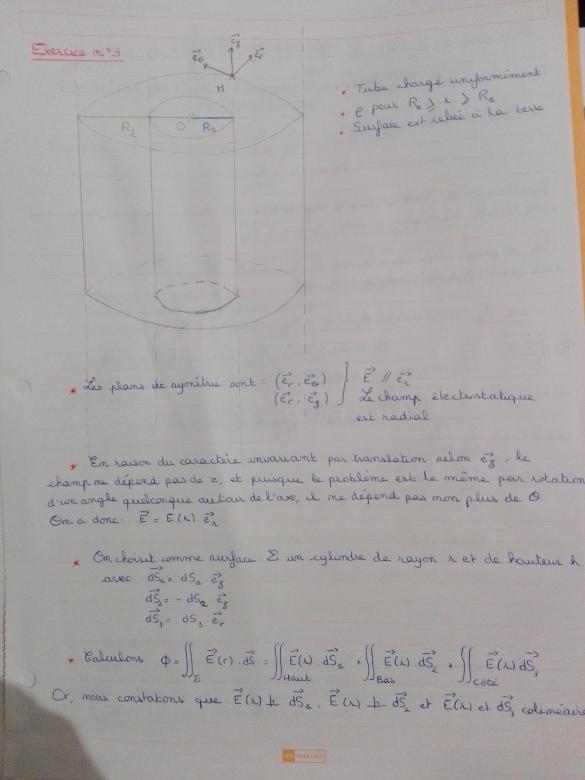 Exercice n°3
e⃗θ e⃗z e⃗r
M
R2 O R1
• Tube chargé uniformément
• ρ pour R2 ⩾ r ⩾ R1
• Surface ext reliée à la terre
* Les plans de symétrie sont : (e⃗r, e⃗θ) ] E⃗ // e⃗r
(e⃗r, e⃗z) Le champ électrostatique
est radial.
* En raison du caractère invariant par translation selon e⃗z, le
champ ne dépend pas de z, et puisque le problème est le même par rotation
d'un angle quelconque autour de l'axe, il ne dépend pas non plus de θ.
On a donc : E⃗ = E(r). e⃗r
* On choisit comme surface Σ un cylindre de rayon r et de hauteur h.
avec dS⃗1 = dS1 . e⃗z
dS⃗2 = - dS2 e⃗z
dS⃗3 = dS3 . e⃗r
* Calculons Φ = ∬Σ E⃗(r). dS⃗ = ∬Haut E⃗(r). dS⃗1 + ∬Bas E⃗(r). dS⃗2 + ∬Côté E⃗(r) dS⃗3
Or, nous constatons que E⃗(r) ⊥ dS⃗1, E⃗(r) ⊥ dS⃗2 et E⃗(r) et dS⃗3 colinéaires